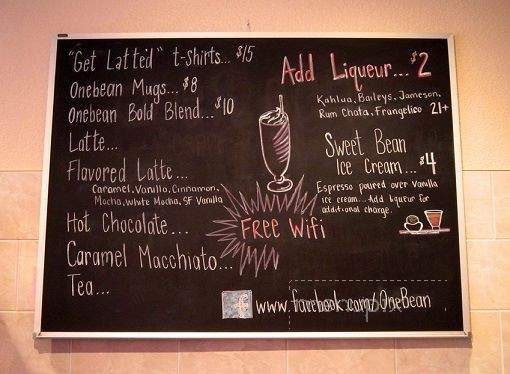 "Get Latted" t-shirts... $15
Onebean Mugs... $8
Onebean Bold Blend... $10
Latte...
Flavored Latte...
Caramel, Vanilla, Cinnamon,
Mocha, White Mocha, SF Vanilla
Hot Chocolate...
Caramel Macchiato...
Tea...
Add Liqueur... $2
Kahlua, Baileys, Jameson,
Rum Chata, Frangelico 21+
Sweet Bean
Ice Cream... $4
Espresso poured over Vanilla
ice cream... Add liqueur for
additional charge.
Free Wifi
f www.facebook.com/OneBean